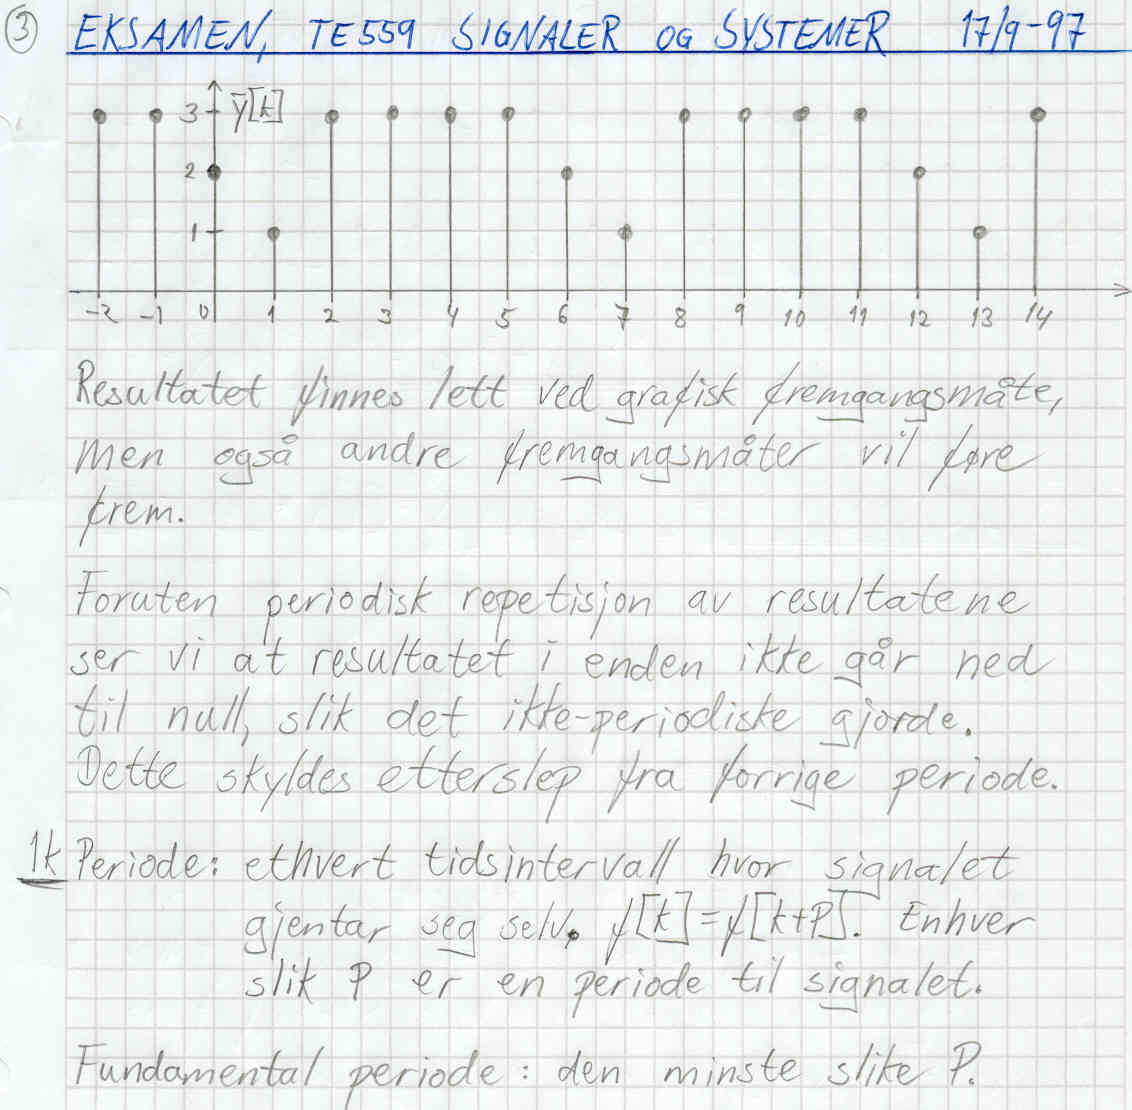 ③ EKSAMEN, TE559 SIGNALER OG SYSTEMER 17/9-97
3 ȳ[k]
2
1
-2 -1 0 1 2 3 4 5 6 7 8 9 10 11 12 13 14
Resultatet finnes lett ved grafisk fremgangsmåte,
men også andre fremgangsmåter vil føre
frem.
Foruten periodisk repetisjon av resultatene
ser vi at resultatet i enden ikke går ned
til null, slik det ikke-periodiske gjorde.
Dette skyldes etterslep fra forrige periode.
1k Periode: ethvert tidsintervall hvor signalet
gjentar seg selv. f[k]=f[k+P]. Enhver
slik P er en periode til signalet.
Fundamental periode: den minste slike P.